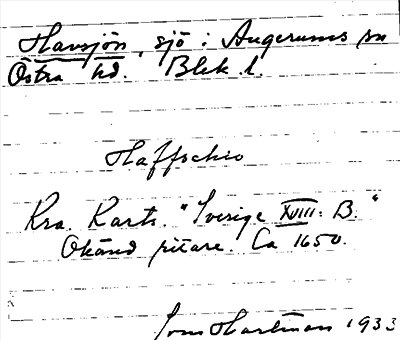 Havsjön, sjö i Augerums sn
Östra hd. Blek. l.
Haffschio
Kra. Kartv. "Sverige XVIII: B."
Okänd ritare. Ca 1650.
Hartman 1933